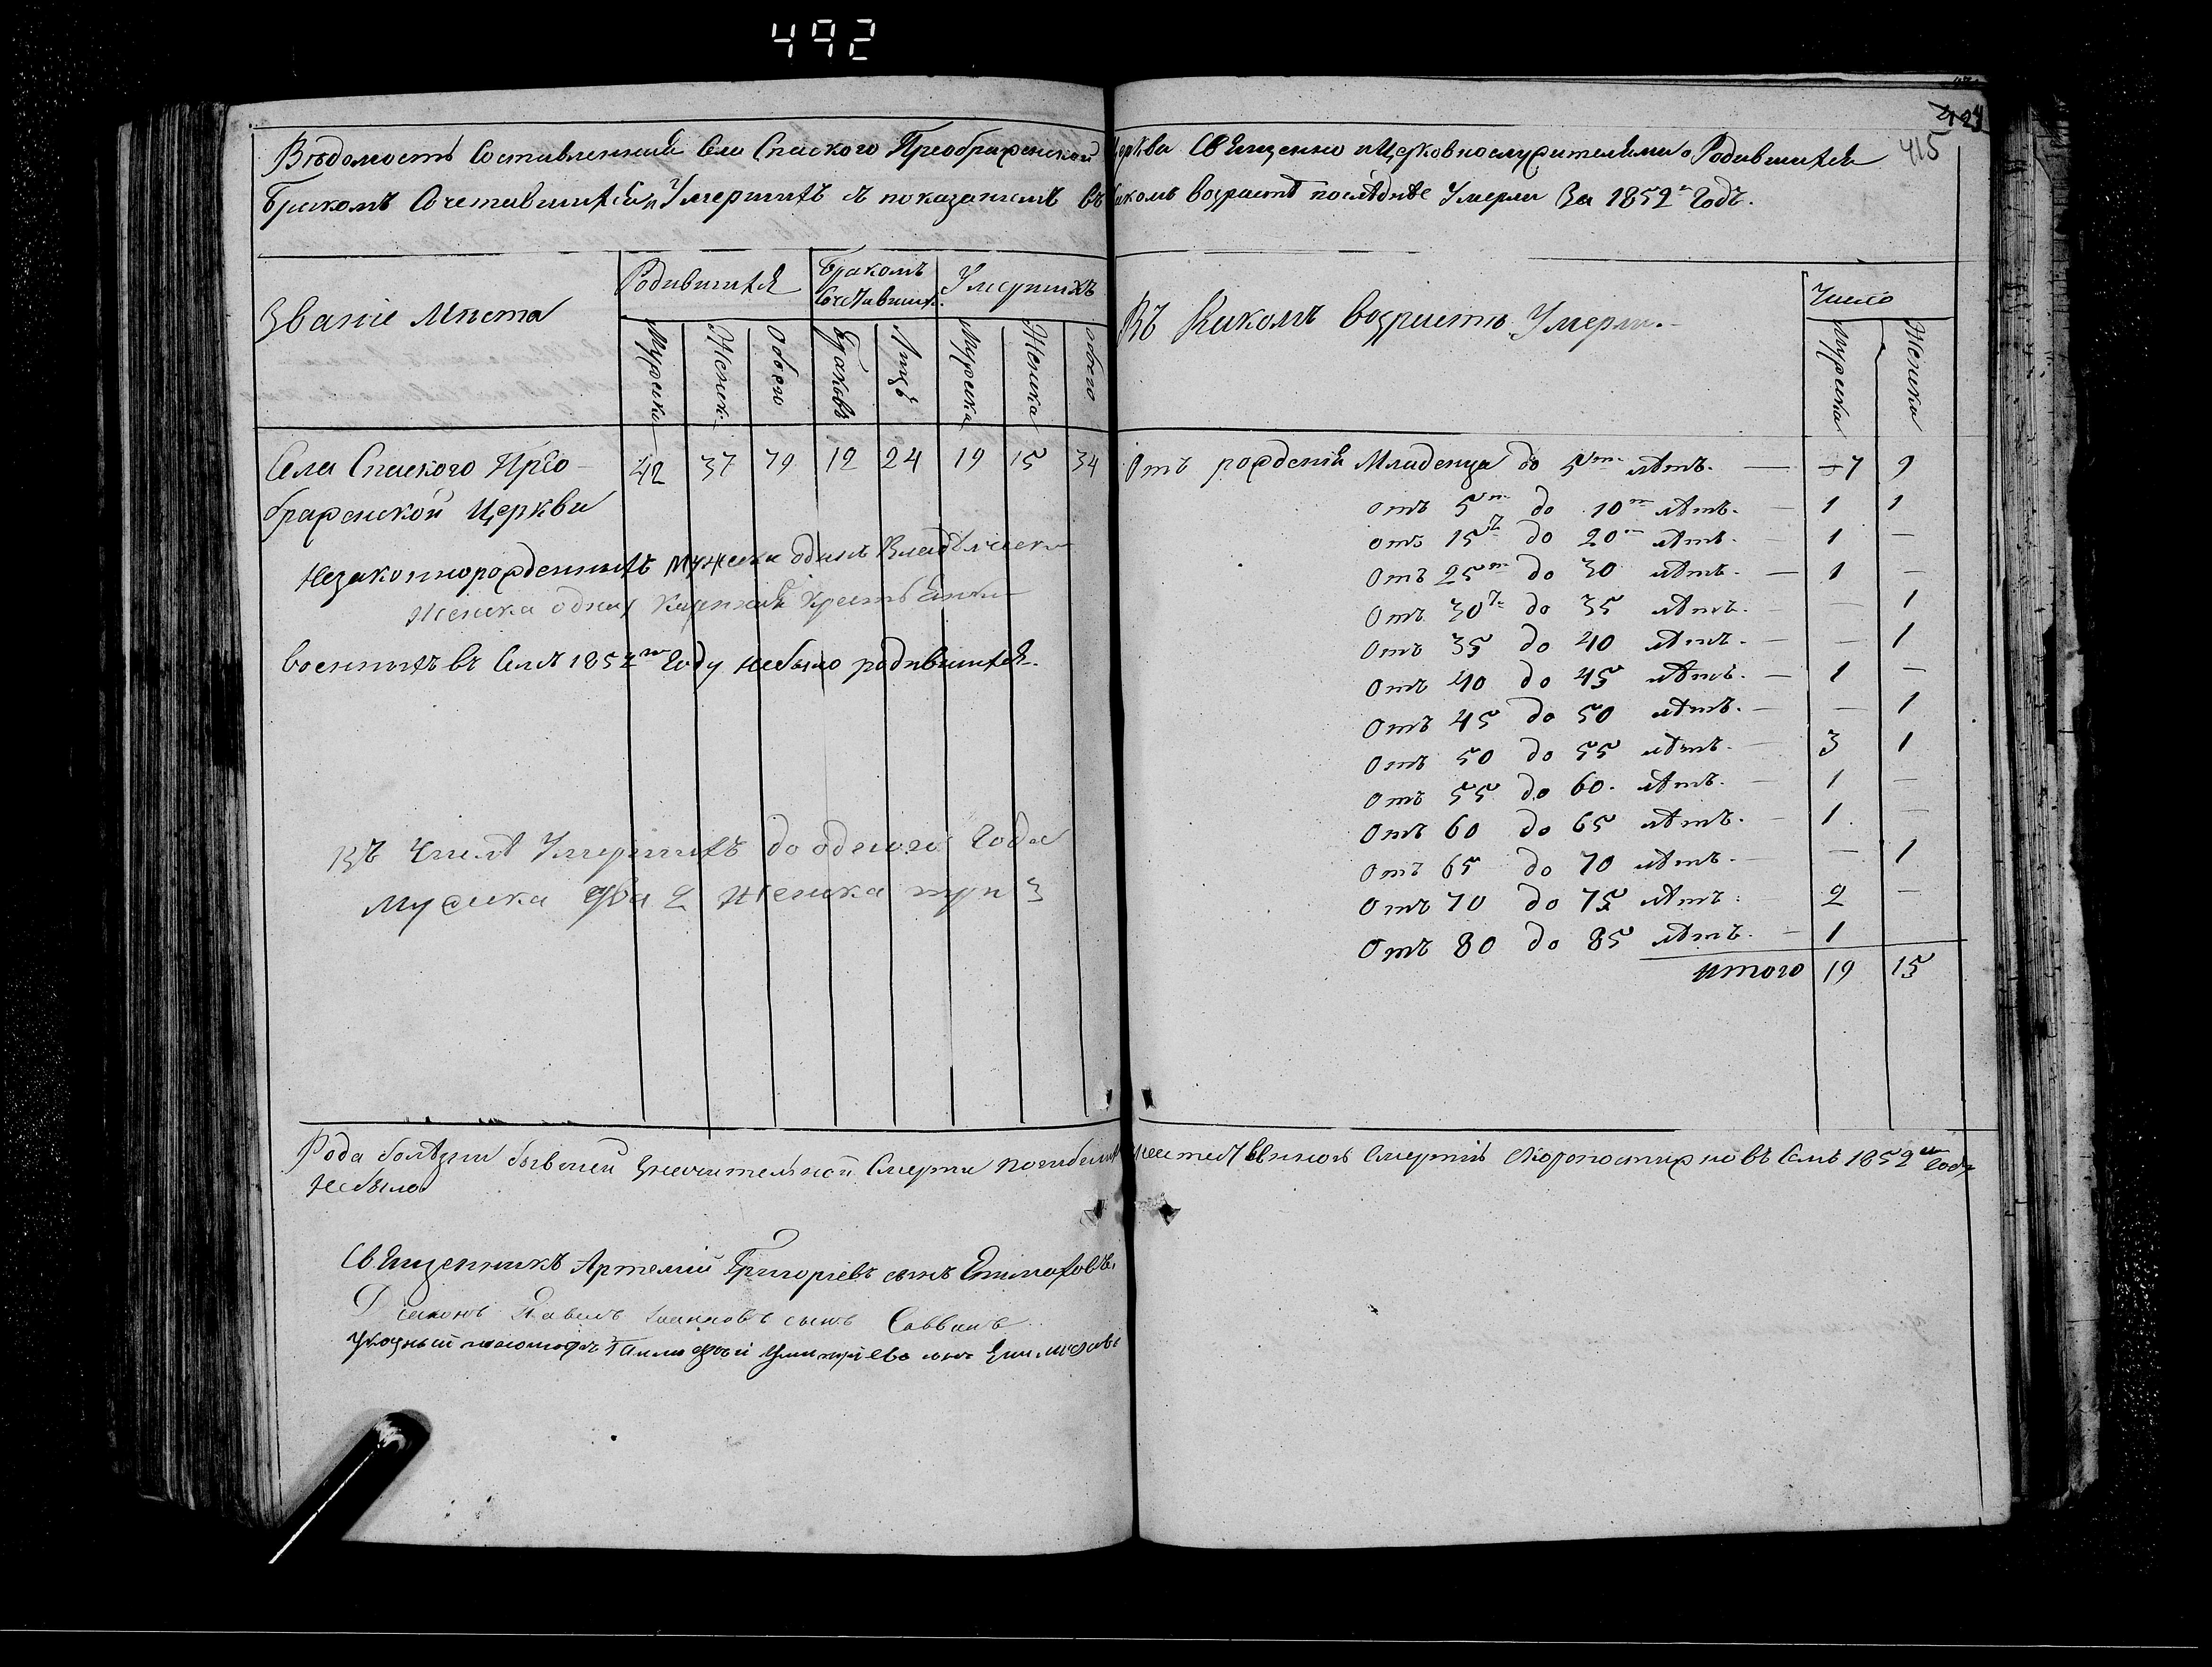 492
424
415
Вѣдомость Составленная Села Спаского Преображенской Церкви Священно и Церковнослужителями о Родившихся
Бракомъ Сочетавшихся и Умершихъ съ показаніемъ въ какомъ возрастѣ послѣдніе Умерли За 1852й Годъ.
Званіе Мѣста
Родившихся
Бракомъ Сочетавших.
Умершихъ
Въ Какомъ возрастѣ Умерли.
Число
Мужеска Женск. Обоего Браковъ Лицъ Мужеска Женска обоего
Мужеска Женска
Села Спаского Прео- 42 37 79 12 24 19 15 34
браженской Церкви
Незаконнорожденныхъ Мужеска одинъ
Женска одна
военныхъ въ Семъ 1852м Году небыло родившихся.
Въ Числѣ Умершихъ до одного Года
Мужеска два 2 Женска три 3
Отъ рожденія Младенца до 5ти лѣтъ. — 7 9
отъ 5ти до 10ти лѣтъ. — 1 1
отъ 15ти до 20ти лѣтъ. — 1 —
Отъ 25ти до 30 лѣтъ. — 1 —
Отъ 30ти до 35 лѣтъ. — — 1
Отъ 35 до 40 лѣтъ. — — 1
Отъ 40 до 45 лѣтъ. — 1 —
Отъ 45 до 50 лѣтъ. — — 1
Отъ 50 до 55 лѣтъ. — 3 1
Отъ 55 до 60. лѣтъ. — 1 —
Отъ 60 до 65 лѣтъ. — 1 —
Отъ 65 до 70 лѣтъ. — — 1
Отъ 70 до 75 лѣтъ. 2 —
Отъ 80 до 85 лѣтъ. — 1
итого 19 15
Рода болѣзни бывшей Смерти Смертію Скоропостижно въ Семъ 1852м Году
Небыло
Священникъ Артемій Григорьевъ сынъ
Діаконъ Павелъ сынъ Саввинъ
Указный пономарь сынъ